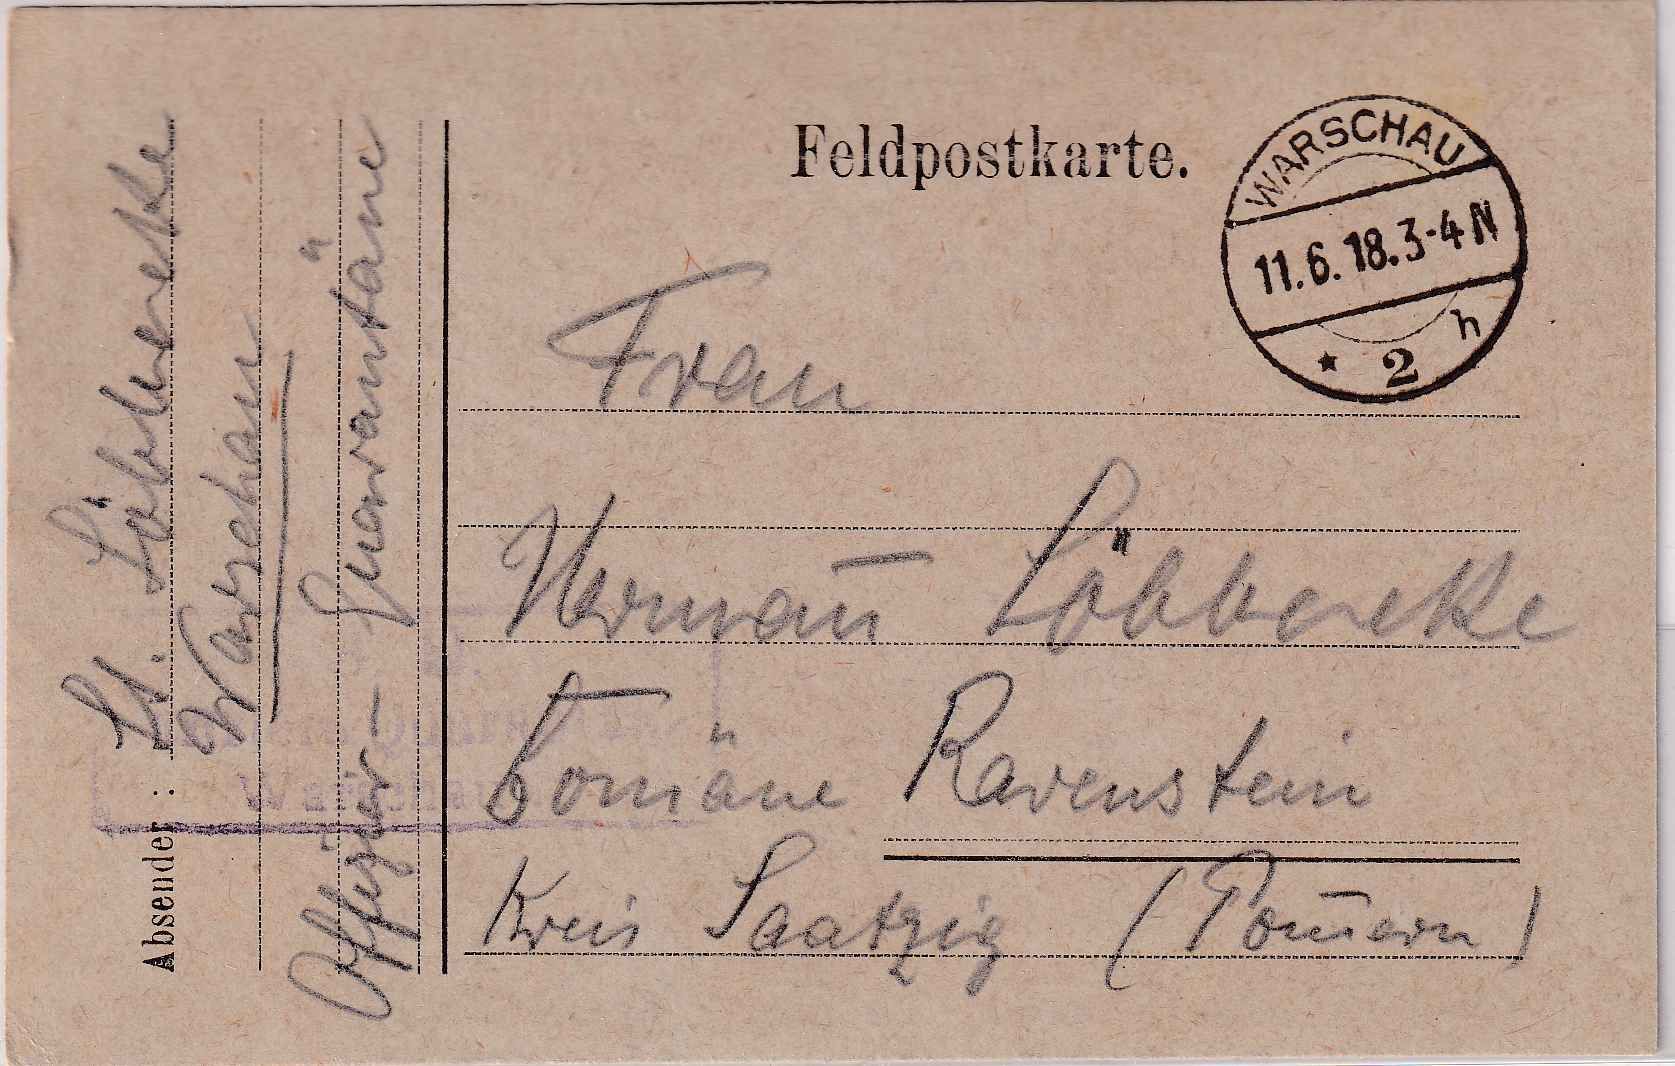 Feldpostkarte.
WARSCHAU
11.6.18.3-4 N
* 2 h
Frau
Hermañ Löbbecke
Domäne Ravenstein
Kreis Saatzig (Pom̄ern)
Absender: Lt. Löbbecke
Warschau
Offizier-Quarantäne